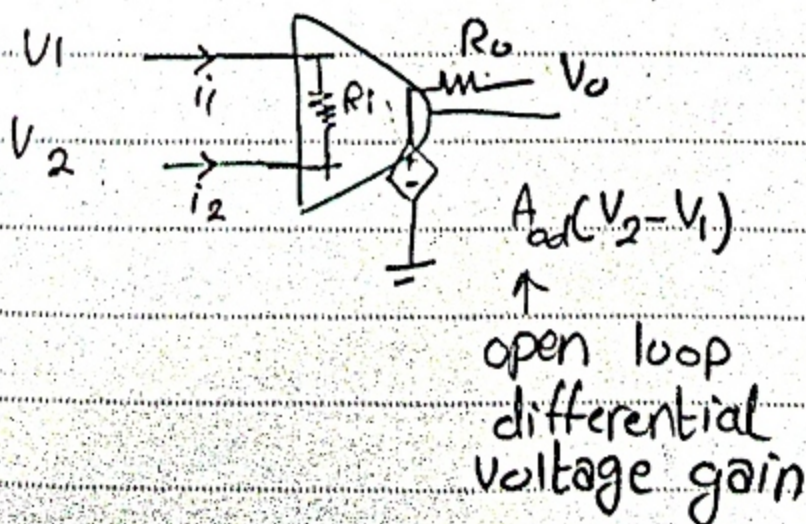 V1
i1
Ri
Ro
Vo
V2
i2
+
-
Aod(V2-V1)
↑
open loop
differential
voltage gain